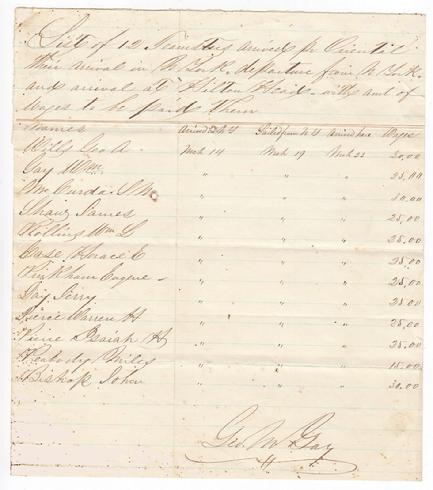 List of 12 Teamsters arrived pr Oriental
their arrival in N York. departure from N York.
and arrival at Hilton Head. with amt of
wages to be paid them
Names Arrived N Y Sailed from N Y Arrived here Wages
Wills Geo A. Mch 14 Mch 19 Mch 23 20,00
Gay Wm " " " 25,00
" " " 20.00
Shaw James " " " 25,00
Rollins Wm L " " " 25.00
Case Horace E " " " 25.00
Kirkham Eugene " " " 25.00
Gay Jerry " " " 25.00
Pierce Warren H " " " 25,00
Isaiah H " " " 25.00
Peabody Miles " " " 15.00
Bishop John " " " 30.00
Geo. W. Gay